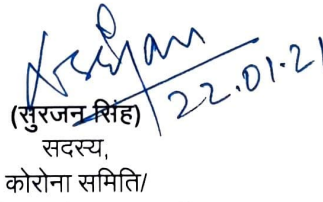 22.01.21
(सुरजन सिंह)
सदस्य,
कोरोना समिति/